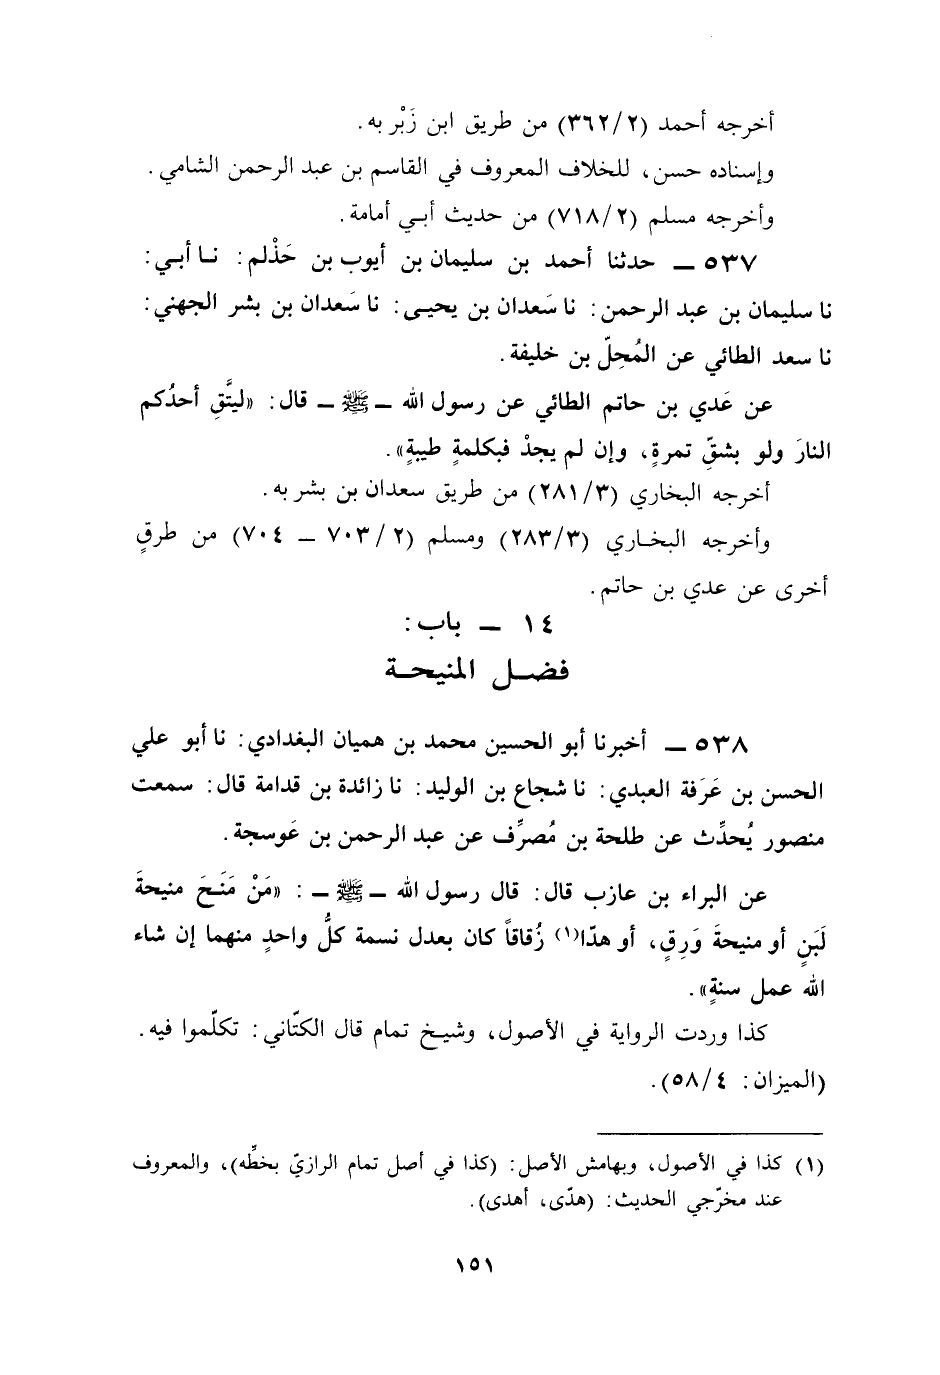 أخرجه أحمد (٣٦٢/٢) من طريق ابن زَبْر به.
وإسناده حسن، للخلاف المعروف في القاسم بن عبد الرحمن الشامي.
وأخرجه مسلم (٧١٨/٢) من حديث أبي أمامة.
٥٣٧ ــ حدثنا أحمد بن سليمان بن أيوب بن حَذْلم: نا أبي:
نا سليمان بن عبد الرحمن: نا سَعدان بن يحيى: نا سَعدان بن بشر الجهني:
نا سعد الطائي عن المُحِلّ بن خليفة.
عن عَدي بن حاتم الطائي عن رسول الله ــ ﷺ ــ قال: «ليتَّقِ أحدُكم
النارَ ولو بشقِّ تمرةٍ، وإن لم يجدْ فبكلمةٍ طيبةٍ».
أخرجه البخاري (٢٨١/٣) من طريق سعدان بن بشر به.
وأخرجه البخاري (٢٨٣/٣) ومسلم (٧٠٣/٢ ــ ٧٠٤) من طرقٍ
أخرى عن عدي بن حاتم.
١٤ ــ باب:
فضل المنيحة
٥٣٨ ــ أخبرنا أبو الحسين محمد بن هميان البغدادي: نا أبو علي
الحسن بن عَرَفة العبدي: نا شجاع بن الوليد: نا زائدة بن قدامة قال: سمعت
منصور يُحدِّث عن طلحة بن مُصرِّف عن عبد الرحمن بن عَوسجة.
عن البراء بن عازب قال: قال رسول الله ــ ﷺ ــ: «مَنْ مَنَحَ منيحةَ
لَبَنٍ أو منيحةَ وَرِقٍ، أو هدّا(١) زُقاقاً كان بعدل نسمة كلُّ واحدٍ منهما إن شاء
الله عمل سنةٍ».
كذا وردت الرواية في الأصول، وشيخ تمام قال الكتّاني: تكلّموا فيه.
(الميزان: ٥٨/٤).
(١) كذا في الأصول، وبهامش الأصل: (كذا في أصل تمام الرازيّ بخطِّه)، والمعروف
عند مخرّجي الحديث: (هدّى، أهدى).
١٥١